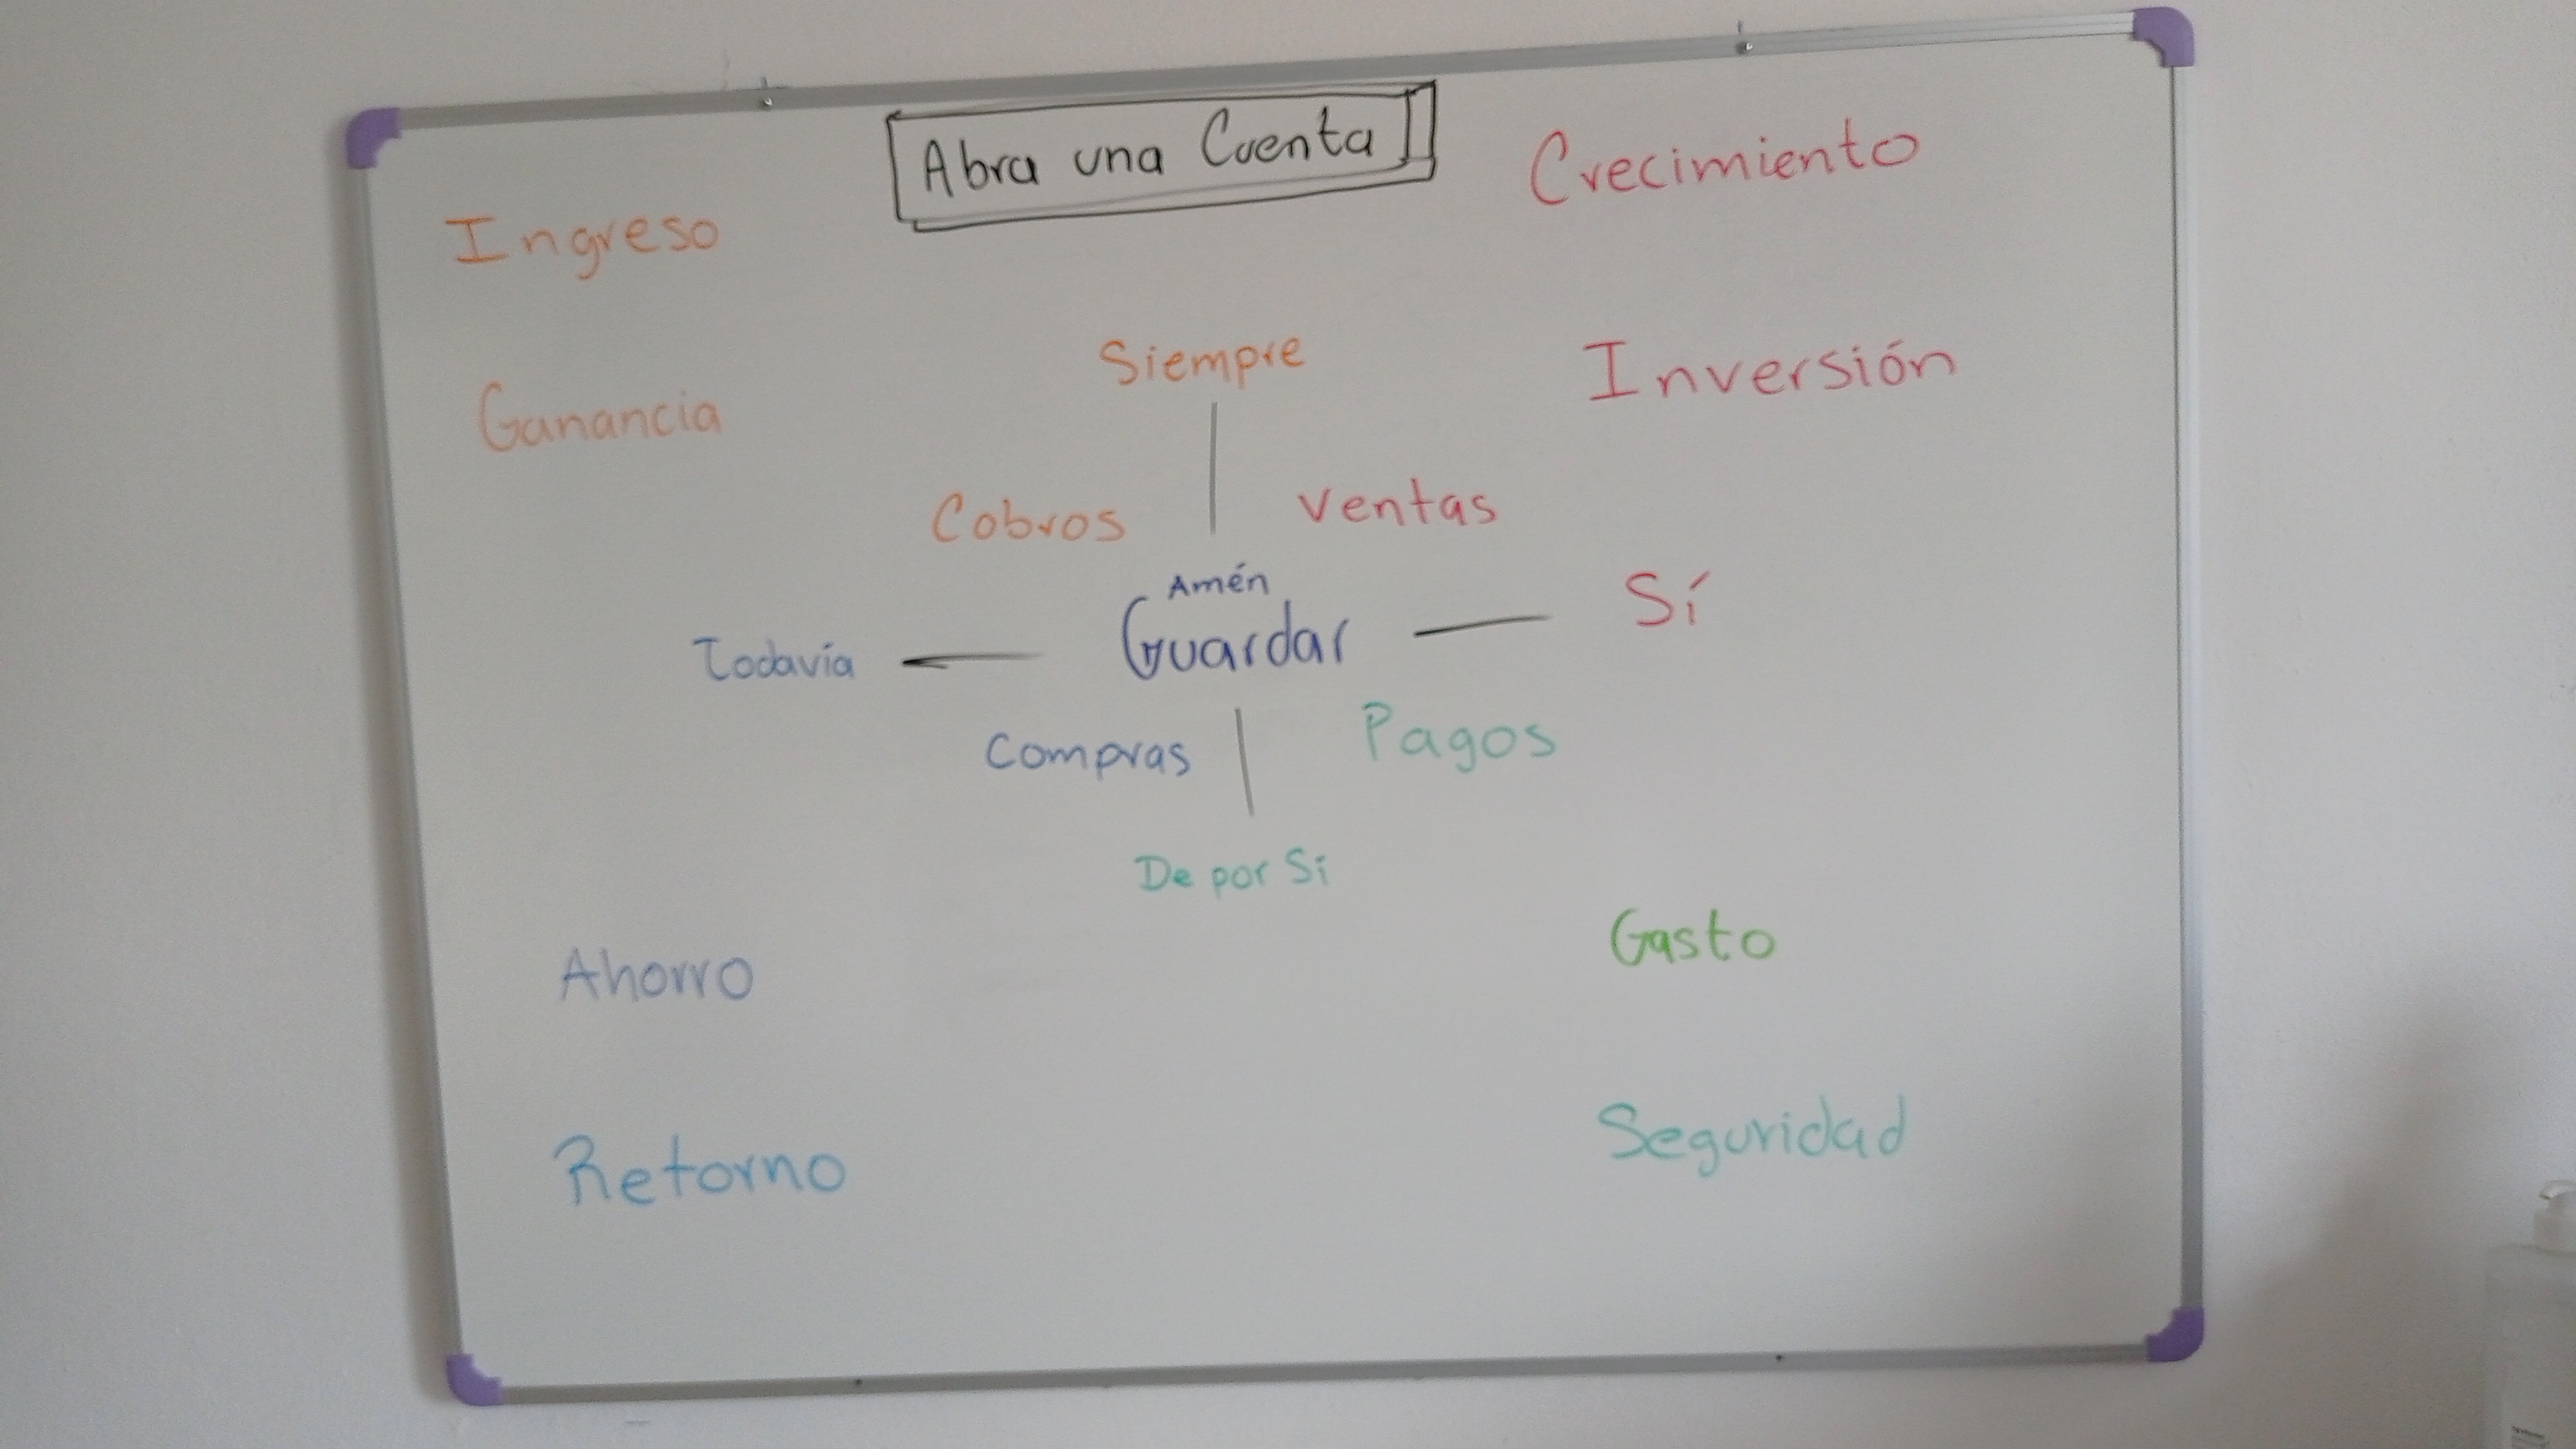 Abra una Cuenta
Crecimiento
Ingreso
Siempre
Inversión
Ganancia
Cobros
Ventas
Amén
Guardar
Sí
Todavía
Compras
Pagos
De por Sí
Gasto
Ahorro
Seguridad
Retorno